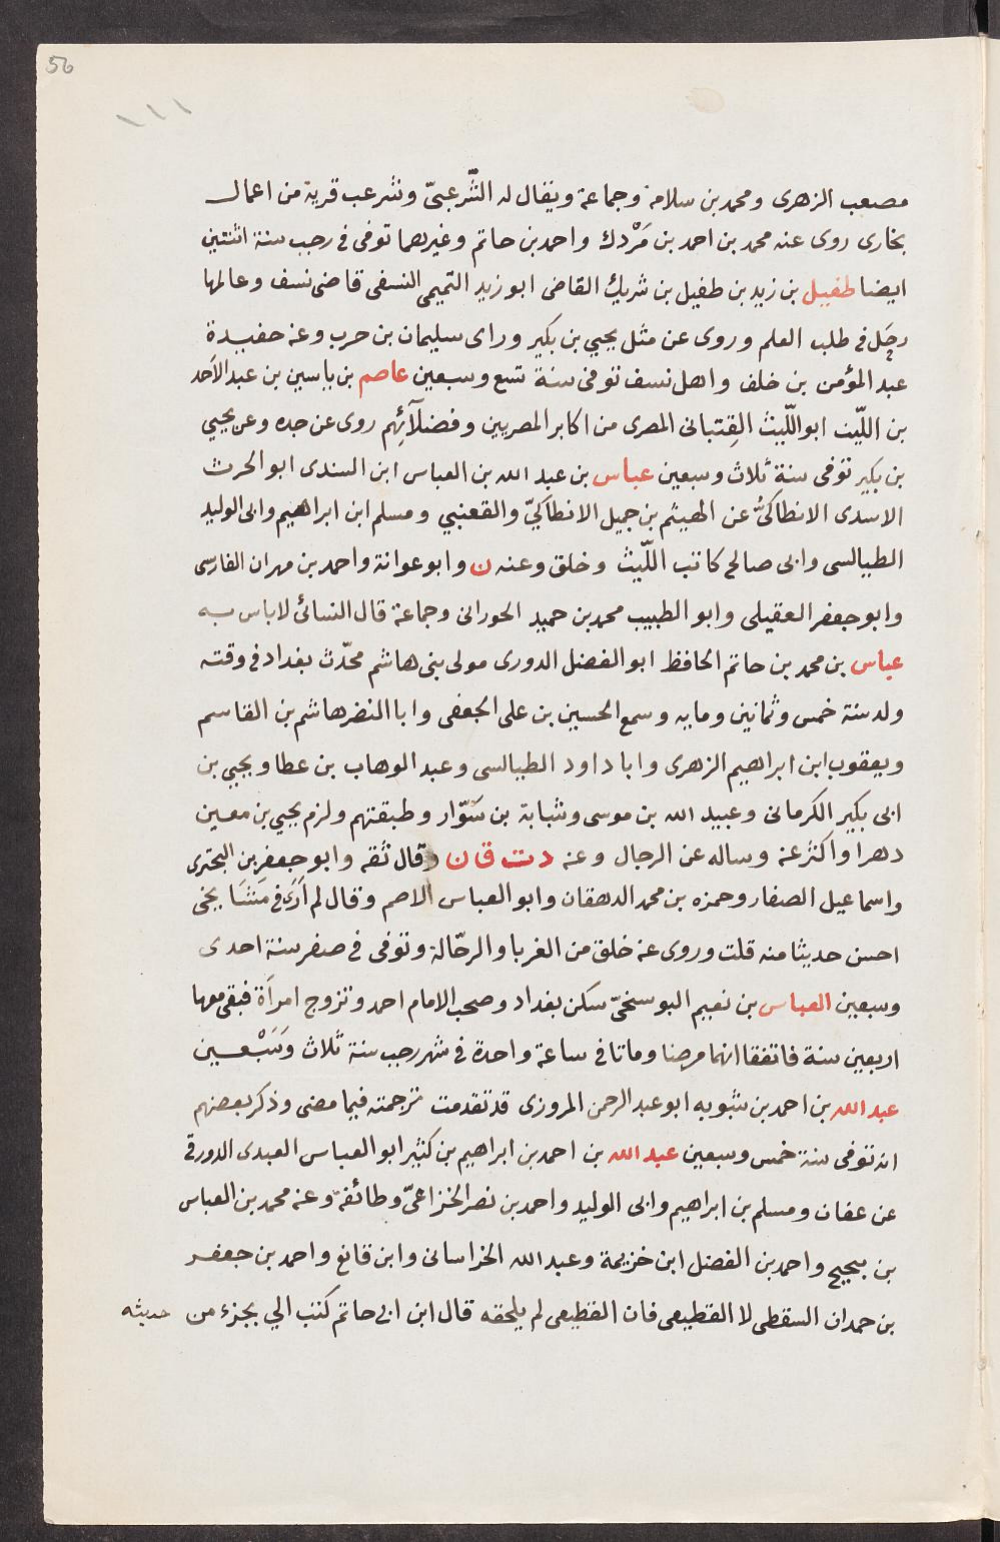 56
١١١
مصعب الزهرى ومحمد بن سلامة وجماعة ويقال له الشَّرعبىّ وشرعب قرية من اعمال
بخارى روى عنه محمد بن احمد بن مَرْدك واحمد بن حاتم وغيرهما توفى فى رجب سنة اثنتين
ايضا طفيل بن زيد بن طفيل بن شريك القاضى ابو زيد التميمى النسفى قاضى نسف وعالمها
رحَل فى طلب العلم وروى عن مثل يحيي بن بكير وراى سليمان بن حرب وعنه حفيدة
عبد المؤمن بن خلف واهل نسف توفى سنة تسع وسبعين عاصم بن ياسين بن عبد الآحد
بن اللّيث ابو اللّيث القِتبانى المصرى من اكابر المصريين وفضلآئِهم روى عن جده وعن يحيي
بن بكير توفى سنة ثلاث وسبعين عباس بن عبد الله بن العباس ابن السندى ابو الحرث
الاسدى الانطاكىُّ عن الهيثم بن جميل الانطاكىّ والقعنبي ومسلم ابن ابراهيم وابى الوليد
الطيالسى وابى صالح كاتب اللّيث وخلق وعنه ن وابو عوانة واحمد بن مهران الفارسى
وابو جعفر العقيلى وابو الطبيب محمد بن حميد الحورانى وجماعة قال النسائ لاباس به
عباس بن محمد بن حاتم الحافظ ابو الفضل الدورى مولى بنى هاشم محدّث بغداد فى وقته
ولد سنة خمس وثمانين ومايه وسمع الحسين بن على الجعفى وابا النضر هاشم بن القاسم
ويعقوب ابن ابراهيم الزهرى وابا داود الطيالسى وعبد الوهاب بن عطا ويحيي بن
ابى بكير الكرمانى وعبيد الله بن موسى وشبابة بن سَوّار وطبقتهم ولزم يحيي بن معين
دهرا واكثر عنه وساله عن الرجال وعنه د ت ق ن وقال ثقه وابو جعفر بن البخترى
واسماعيل الصفار وحمزه بن محمد الدهقان وابو العباس الاصم وقال لم اَرَ فى مَشَايخى
احسن حديثا منه قلت وروى عنه خلق من الغربا والرحّالة وتوفى فى صفر سنة احدى
وسبعين العباس بن نعيم البوسنخىّ سكن بغداد وصحب الامام احمد وتزوج امرآة فبقى معها
اربعين سنة فاتفقا انهما مرضا وماتا فى ساعة واحدة فى شهر رجب سنة ثلاث وَسَبْعين
عبد الله بن احمد بن شبويه ابو عبد الرحمن المروزى قد تقدمت ترجمته فيما مضى وذكر بعضهم
انه توفى سنة خمس وسبعين عبد الله بن احمد بن ابراهيم بن كثير ابو العباس العبدى الدورقى
عن عفان ومسلم بن ابراهيم وابى الوليد واحمد بن نصر الخزاعىّ وطائفة وعنه محمد بن العباس
بن نجيح واحمد بن الفضل ابن خزيمة وعبد الله الخراسانى وابن قانع واحمد بن جعفر
بن حمدان السقطى لا القطيعى فان القطيعى لم يلحقه قال ابن ابى حاتم كتب الي بجزء من حديثه